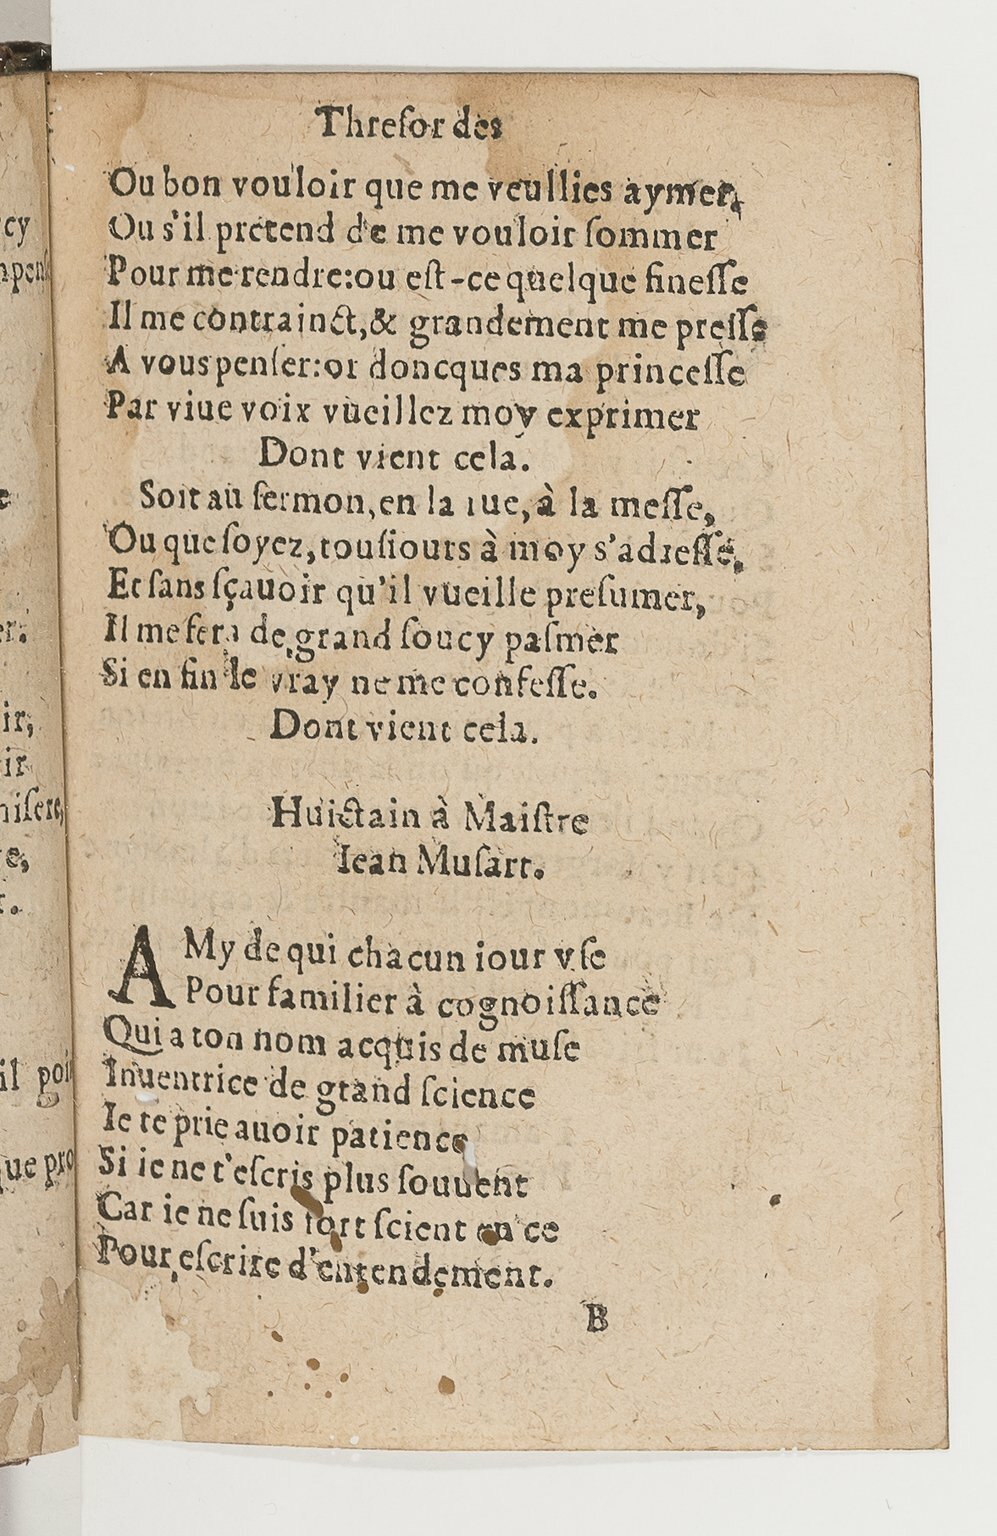 Thresor des
Ou bon vouloir que me veullies aymer,
Ou s'il pretend de me vouloir sommer
Pour me rendre:ou est-ce quelque finesse
Il me contrainct,& grandement me presse
A vous penser:or doncques ma princesse
Par viue voix vueillez moy exprimer
Dont vient cela.
Soit au sermon,en la rue,à la messe,
Ou que soyez,tousiours à moy s'adresse.
Et sans sçauoir qu'il vueille presumer,
Il me fera de grand soucy pasmer
Si en fin le vray ne me confesse.
Dont vient cela.
Huictain à Maistre
Iean Musart.
AMy de qui chacun iour vse
Pour familier à cognoissance
Qui a ton nom acquis de muse
Inuentrice de grand science
Ie te prie auoir patience
Si ie ne t'escris plus souuent
Car ie ne suis fort scient en ce
Pour escrire d'entendement.
B
cy
er:
ir,
ir
misere,
e,
il poi
que pro